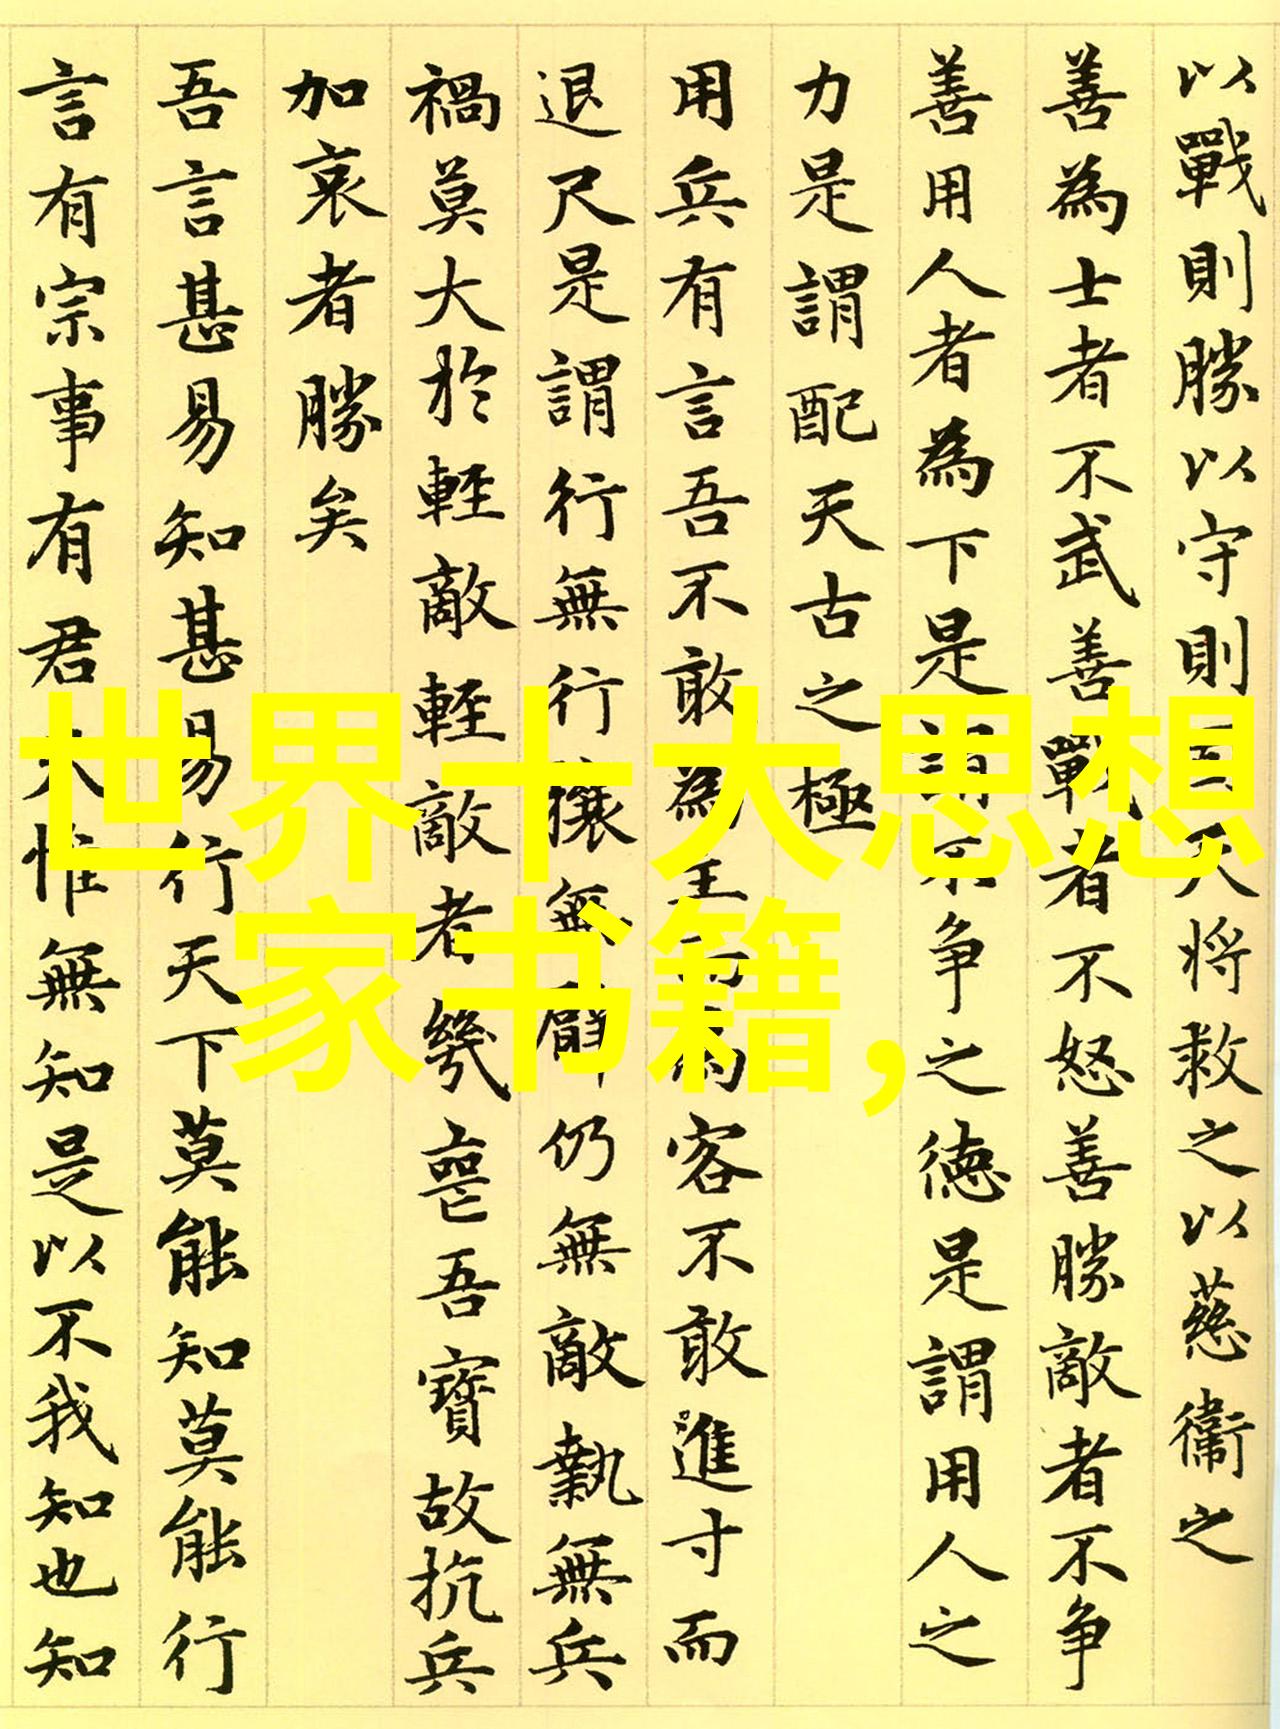 以戰則勝以守則固天將救之以慈衞之
善為士者不武善戰者不怒善勝敵者不争
善用人者為下是謂不争之德是謂用人之
力是謂配天古之極
用兵有言吾不敢為主而為客不敢進寸而
退尺是謂行無行攘無臂仍無敵執無兵
禍莫大於輕敵輕敵者幾喪吾寶故抗兵
加哀者勝矣
吾言甚易知甚易行天下莫能知莫能行
言有宗事有君夫惟無知是以不我知也知
世界十大思想
家书籍,